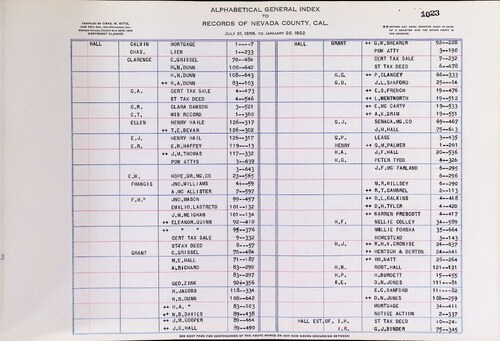 ALPHABETICAL GENERAL INDEX
TO
RECORDS OF NEVADA COUNTY, CAL.
JULY 21, 1856, TO JANUARY 26, 1932
COMPILED BY CHAS. W. KITTS,
COPYRIGHT CLAIMED
1023
HALL CALVIN MORTGAGE 1----7
CHAS. LIEN 1--233
CLARENCE C.GRISSEL 70--484
H.N.DUNN 105--642
H.N.DUNN 108--643
++ H.A.DUNN 83--103
C.A. CERT TAX SALE 4--473
ST TAX DEED 4--546
C.R. CLARA DAWSON 3--521
C.T. MIS RECORD 1--360
ELLEN HENRY HAILE 126--317
++ T.E.BEVAN 126--302
E.J. HENRY HAIL 126--317
E.R. E.W.HAFFEY 119---13
++ J.M.THOMAS 117--332
POW ATTYS 3--639
3--643
E.W. HOPE,GR,MG,CO 23--565
FRANCIS JNO,WILLIAMS 4---59
A.MC ALLISTER 79--597
F.H. JNO,MASON 99--457
EMILIO,LASTRETO 101--132
J.W.MEIGHAN 101--134
++ ELEANOR,GUINN 92--410
++ " " 95--376
CERT TAX SALE 9--332
ST TAX DEED 8---57
GRANT C.GRISSEL 70--484
M.E.HALL 71--187
A.RICHARD 83--296
83--297
GEO,ZINK 92--356
H.JACOBS 118--334
H.N.DUNN 108--642
++ H.A. " 83--103
++ W.B.DAVIES 89--438
++ J.M.COOPER 89--464
++ J.C.HALL 89--490
HALL GRANT ++ G.W.SHEARER 92--228
POW ATTY 3--190
CERT TAX SALE 7--232
ST TAX DEED 6--478
G.C. ++ P.CLANCEY 66--333
G.D. J.L.SANFORD 25---14
++ E.B.FRENCH 19--476
++ L.WENTWORTH 19--512
++ E,MC CARTY 19--533
++ A.K.GRIM 19--551
G.J. SENACA,MG,CO 69--467
J.H.HALL 75--613
G.P. LEASE 3--435
HENRY ++ G.W.PALMER 1--261
H.A. J.F.HALL 20--536
H.G. PETER TYDD 4--326
J.F.MC FARLAND 6--295
6--296
M.R.WILLSEY 6--290
++ R.T.GAMBREL 2--113
++ D.L.CALKINS 4--418
++ D.H.TYLER 4--420
++ WARREN PRESCOTT 4--417
H.F. NELLIE COLLEY 34--589
WILLIE FORSHA 35--664
HOMESTEAD 3--143
H.J. ++ W.H.V.CRONISE 24--637
++ HENTSCH & BERTON 24--641
++ WM,WATT 26--264
H.N. ROBT,HALL 121--121
H.P. H.BURDETT 15--455
I.E. D.N.JONES 111---81
E.C.SANFORD 111---82
++ D.N.JONES 108--259
MORTGAGE 34--411
NOTICE ACTION 2--337
HALL EST,OF, I.H. ST TAX DEED 10--241
I.R. G.J.BINDER 75--345